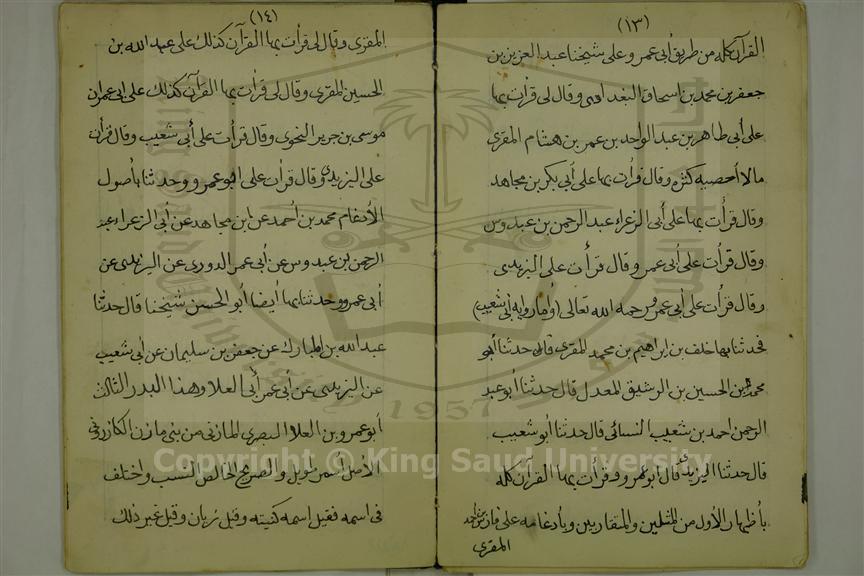 (١٣)
القرآن كله من طريق أبي عمر وعلى شيخنا عبد العزيز بن
جعفر بن محمد بن اسحاق البغدادي وقال لي قرأت بها
على أبي طاهر بن عبد الواحد بن عمر بن هشام المقري
مالا أحصيه كثرة وقال قرأت بها على أبي بكر بن مجاهد
وقال قرأت بها على أبي الزعراء عبد الرحمن بن عبدوس
وقال قرأت على أبي عمر وقال قرأت على اليزيدى
وقال قرأت على أبي عمرو رحمه الله تعالى (وأما رواية أبي شعيب)
فحدثنا بها خلف بن ابراهيم بن محمد المقرى قال حدثنا أبو
محمد بن الحسين بن الرشيق المعدل قال حدثنا أبو عبد
الرحمن احمد بن شعيب النسائي قال حدثنا أبو شعيب
قال حدثنا اليزيدي قال ابو عمرو وقرأت بها القرآن كله
بأظهار الأول من المثلين والمتقاربين وبأدغامه على فارس بن احمد
المقرى
(١٤)
المقرى وقال لى قرأت بها القرآن كذلك على عبد الله بن
الحسين المقرى وقال لى قرأت بها القرآن كذلك على ابى عمران
موسى بن جرير النحوى وقال قرأت على أبي شعيب وقال قرأت
على اليزيدي وقال قرات على ابو عمرو وحدثنا بأصول
الأدغام محمد بن أحمد عن ابن مجاهد عن أبي الزعراء عبد
الرحمن بن عبدوس عن أبي عمر الدوري عن اليزيدى عن
أبي عمرو وحدثنا بها أيضا أبو الحسن شيخنا قال حدثنا
عبد الله بن المبارك عن جعفر بن سليمان عن ابى شعيب
عن اليزيدى عن أبي عمر أبي العلا وهذا البدر الثالث
أبو عمرو بن العلا البصري المازنى من بنى مازن الكازروني
الأصل أسمر طويل والصريح الخالص النسب واختلف
في اسمه فقيل اسمه كنيته وقيل زبان وقيل غير ذلك
Copyright © King Saud University
1957